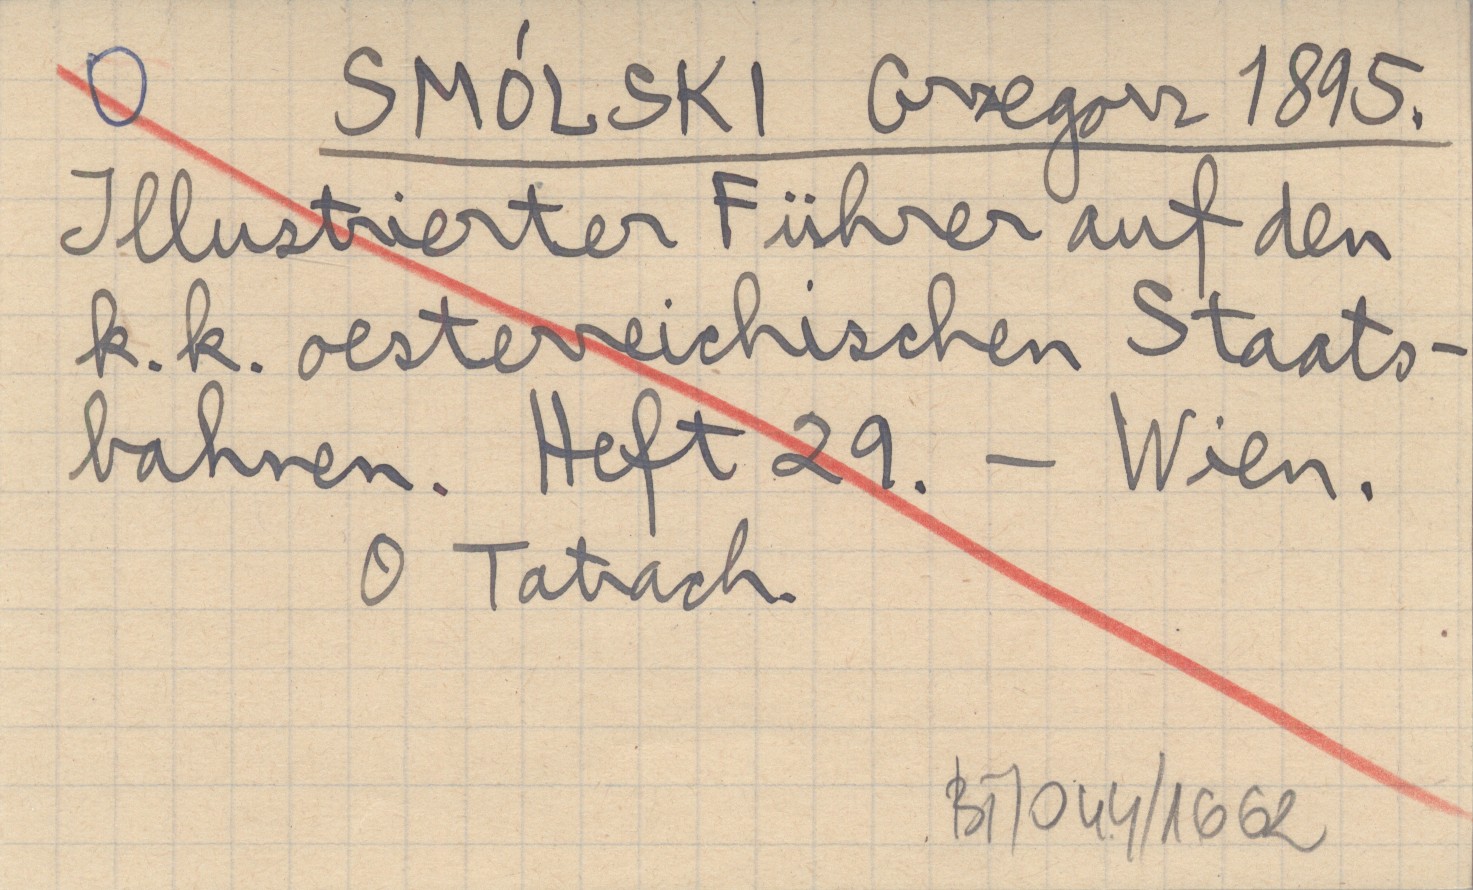 O SMÓLSKI Grzegorz 1895.
Illustrierter Führer auf den
k.k. oesterreichischen Staats-
bahnen. Heft 29. — Wien.
O Tatrach.
BT/044/1662